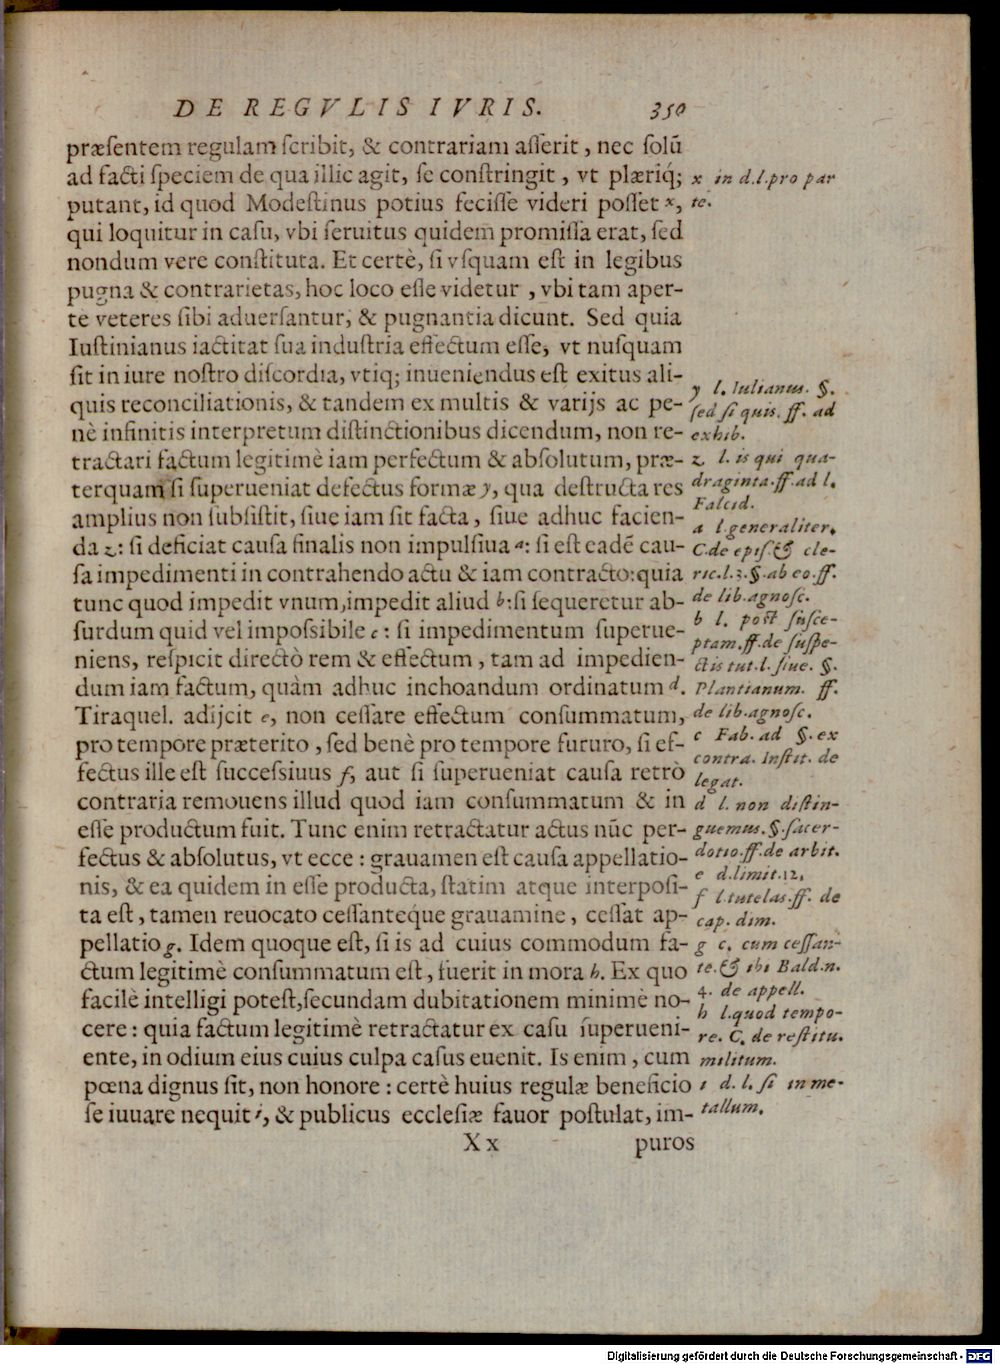 DE REGVLIS IVRIS. 350
præſentem regulam ſcribit, & contrariam aſſerit, nec ſolū
ad facti ſpeciem de qua illic agit, ſe conſtringit, vt plæriq́;
putant, id quod Modeſtinus potius feciſſe videri poſſet x,
qui loquitur in caſu, vbi ſeruitus quidem promiſſa erat, ſed
nondum vere conſtituta. Et certè, ſi vſquam eſt in legibus
pugna & contrarietas, hoc loco eſſe videtur, vbi tam aper-
te veteres ſibi aduerſantur, & pugnantia dicunt. Sed quia
Iuſtinianus iactitat ſua induſtria effectum eſſe, vt nuſquam
ſit in iure noſtro diſcordia, vtiq; inueniendus eſt exitus ali-
quis reconciliationis, & tandem ex multis & varijs ac pe-
nè infinitis interpretum diſtinctionibus dicendum, non re-
tractari factum legitimè iam perfectum & abſolutum, præ-
terquam ſi ſuperueniat defectus formæ y, qua deſtructa res
amplius non ſubſiſtit, ſiue iam ſit facta, ſiue adhuc facien-
da z: ſi deficiat cauſa finalis non impulſiua a: ſi eſt eadē cau-
ſa impedimenti in contrahendo actu & iam contracto: quia
tunc quod impedit vnum, impedit aliud b: ſi ſequeretur ab-
ſurdum quid vel impoſsibile c: ſi impedimentum ſuperue-
niens, reſpicit directò rem & effectum, tam ad impedien-
dum iam factum, quàm adhuc inchoandum ordinatum d.
Tiraquel. adijcit e, non ceſſare effectum conſummatum,
pro tempore præterito, ſed benè pro tempore futuro, ſi ef-
fectus ille eſt ſucceſsiuus f, aut ſi ſuperueniat cauſa retrò
contraria remouens illud quod iam conſummatum & in
eſſe productum fuit. Tunc enim retractatur actus nūc per-
fectus & abſolutus, vt ecce: grauamen eſt cauſa appellatio-
nis, & ea quidem in eſſe producta, ſtatim atque interpoſi-
ta eſt, tamen reuocato ceſſanteque grauamine, ceſſat ap-
pellatio g. Idem quoque eſt, ſi is ad cuius commodum fa-
ctum legitimè conſummatum eſt, fuerit in mora h. Ex quo
facilè intelligi poteſt, ſecundam dubitationem minimè no-
cere: quia factum legitimè retractatur ex caſu ſuperueni-
ente, in odium eius cuius culpa caſus euenit. Is enim, cum
pœna dignus ſit, non honore: certè huius regulæ beneficio
ſe iuuare nequit i, & publicus eccleſiæ fauor poſtulat, im-
Xx puros
x in d.l.pro par
te.
y l. Iulianus. §.
ſed ſi quis. ff. ad
exhib.
z l. is qui qua-
draginta.ff.ad l.
Falcid.
a l.generaliter.
C.de epiſ.& cle-
ric.l.3.§.ab eo.ff.
de lib.agnoſc.
b l. poſt ſuſce-
ptam.ff.de ſuſpe-
ctis tut.l.ſiue. §.
Plantianum. ff.
de lib.agnoſc.
c Fab. ad §. ex
contra. Inſtit. de
legat.
d l. non diſtin-
guemus.§.ſacer-
dotio.ff.de arbit.
e d.limit.12.
f l.tutelas.ff. de
cap. dim.
g c. cum ceſſan-
te.& ibi Bald.n.
4. de appell.
h l.quod tempo-
re. C. de reſtitu.
militum.
i d. l. ſi in me-
tallum.
Digitalisierung gefördert durch die Deutsche Forschungsgemeinschaft - DFG